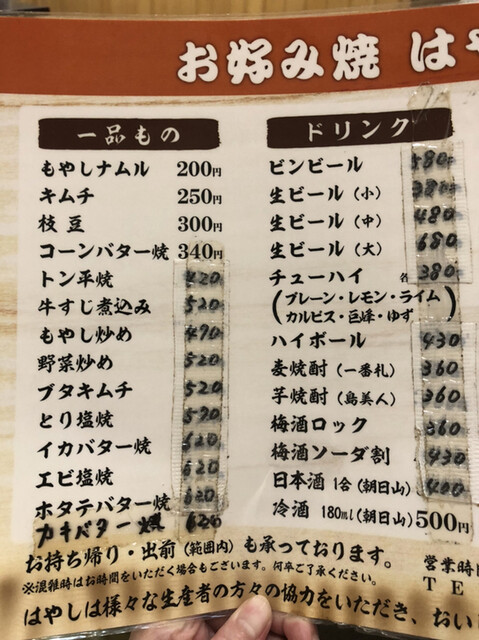 お好み焼 はや
一品もの
もやしナムル 200円
キムチ 250円
枝豆 300円
コーンバター焼 340円
トン平焼 420
牛すじ煮込み 520
もやし炒め 490
野菜炒め 520
ブタキムチ 520
とり塩焼 590
イカバター焼 620
エビ塩焼 620
ホタテバター焼 620
カキバター焼 620
ドリンク
ビンビール 580
生ビール（小） 380
生ビール（中） 480
生ビール（大） 680
チューハイ 各380
（プレーン・レモン・ライム
カルピス・巨峰・ゆず）
ハイボール 430
麦焼酎（一番札） 360
芋焼酎（島美人） 360
梅酒ロック 360
梅酒ソーダ割 430
日本酒 1合（朝日山） 400
冷酒 180ml（朝日山）500円
お持ち帰り・出前（範囲内）も承っております。
※混雑時はお時間をいただく場合もございます。何卒ご了承ください。
はやしは様々な生産者の方々の協力をいただき、おい
営業時
TE